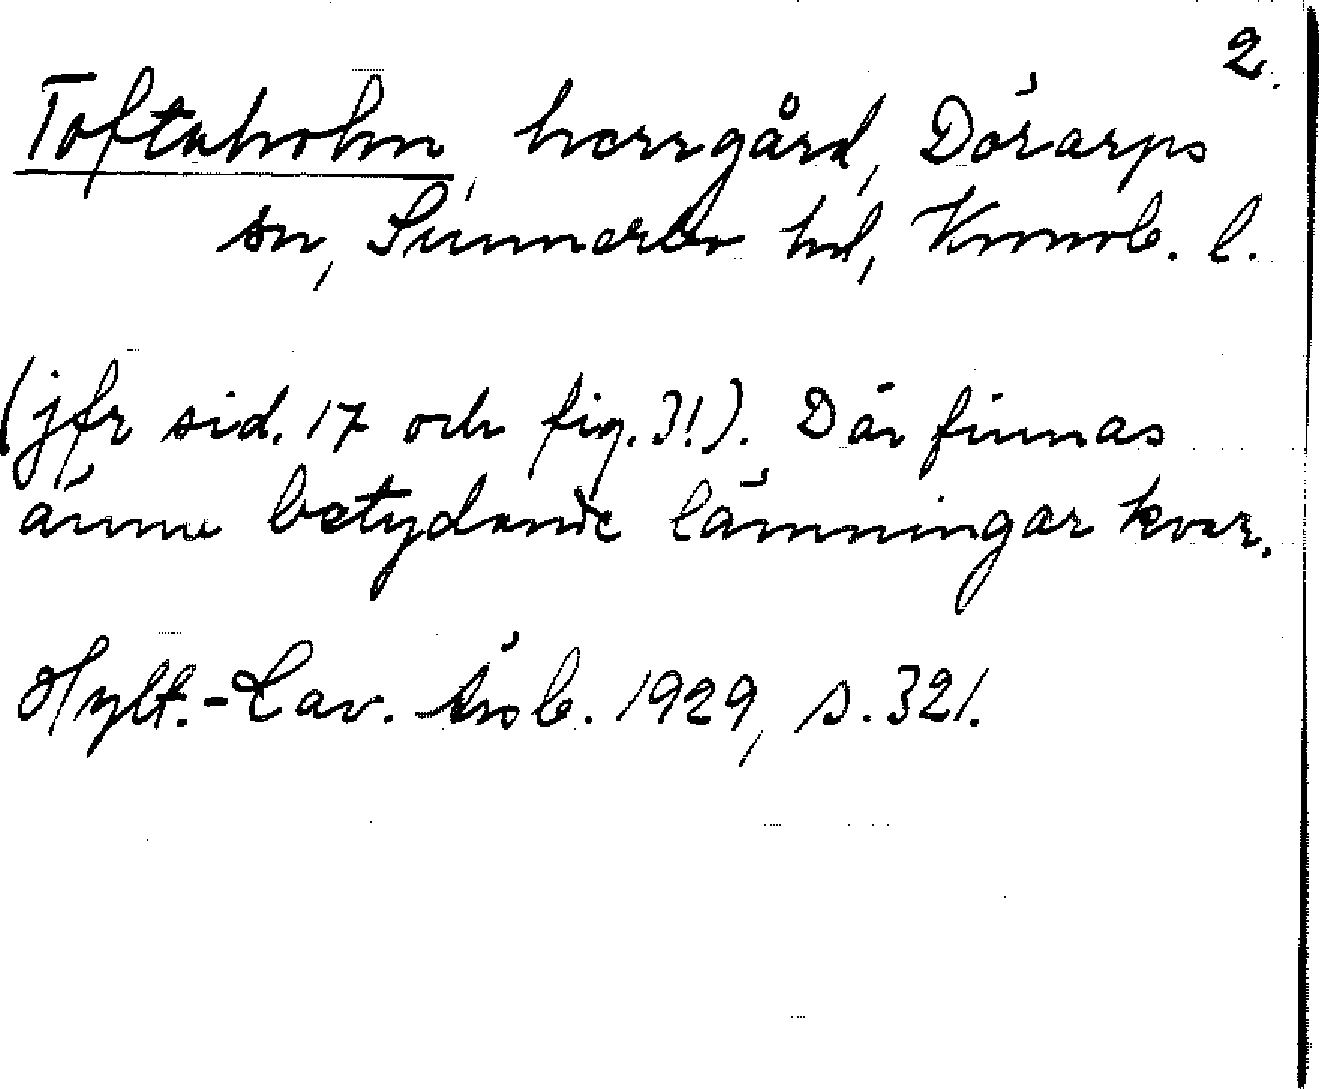 2.
Toftaholm, herrgård, Dörarps
sn, Sunnerbo hd, Kronob. l.
(jfr sid. 17 och fig. 3!). Där finnas
ännu betydande lämningar kvar.
Hylt.-Cav. Årsb. 1929, s. 321.